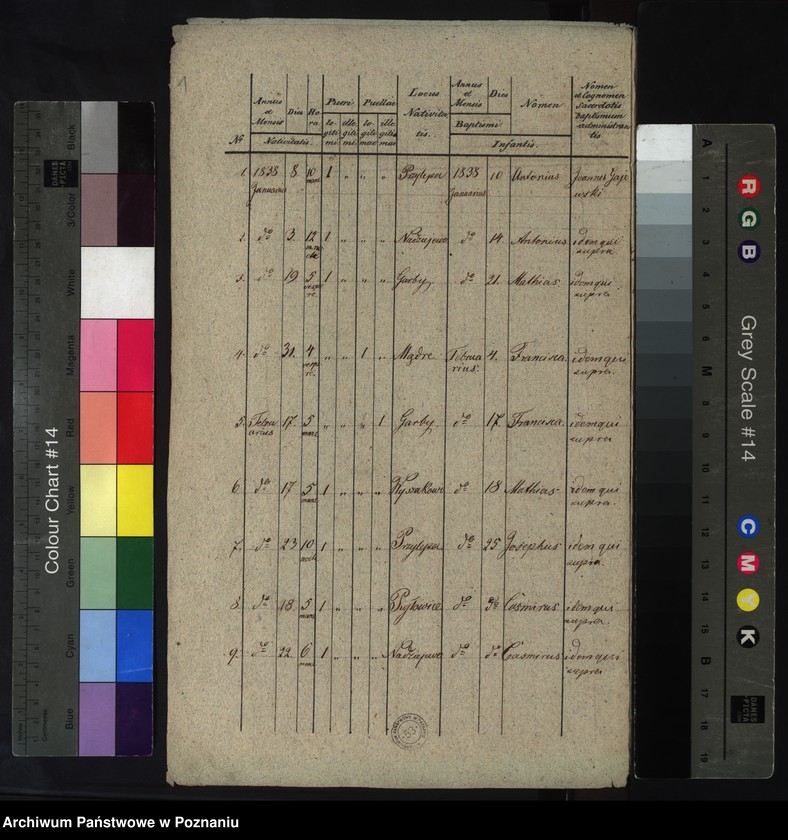 1
Nº
Annus et Mensis
Dies
Hora
Nativitatis.
Pueri
legitimi
illegitimi
Puellae
legitimae
illegitimae
Locus Nativitatis.
Annus et Mensis
Dies
Baptismi
Nomen
Infantis.
Nomen et Cognomen Sacerdotis baptismum administrantis
1. 1838 8 10 1 " " " Przylepki 1838 10 Antonius Joannes
Januarius mane Januarius
2. dº 3. 12 1 " " " dº 14. Antonius idem qui
supra
3. dº 19 5 1 " " " Garby, dº 21. Mathias idem qui
vespere supra
4. dº 31. 4 " " 1 " Mądre Februa 4. Francisca. idem qui
vespere. rius. supra.
5. Febru 17. 5 " " " 1 Garby. dº 17. Francisca idem qui
arius mane supra
6. dº 17 5 1 " " " dº 18 Mathias idem qui
mane supra.
7. dº 23 10 1 " " " dº 25 Josephus idem qui
supra
8. dº 18. 5 1 " " " dº dº Casmirus idem qui
mane supra.
9. dº 22 6 1 " " " dº dº Casmirus idem qui
mane supra
53
Colour Chart #14
Black
3/Color
White
Magenta
Red
Yellow
Green
Cyan
Blue
Centimetres
DANES
PICTA
Grey Scale #14
R
G
B
C
M
Y
K
A
1
2
3
4
5
6
M
8
9
10
11
12
13
14
15
B
17
18
19
DANES
PICTA
Archiwum Państwowe w Poznaniu